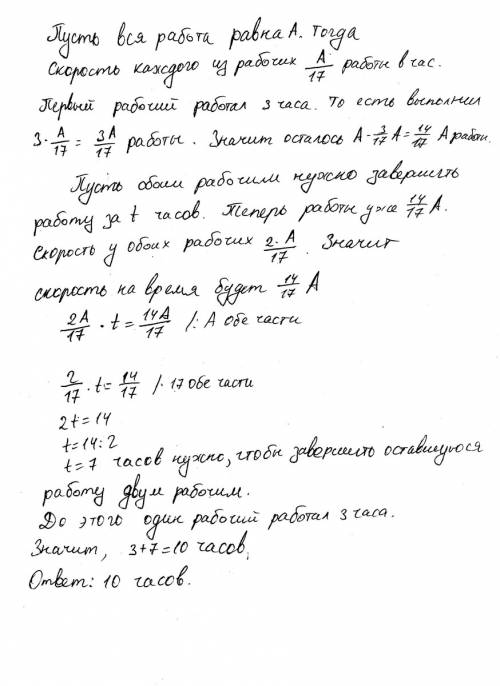 Пусть вся работа равна А. Тогда
скорость каждого из рабочих A/17 работы в час.
Первый рабочий работал 3 часа. То есть выполнил
3·A/17 = 3A/17 работы. Значит осталось A-3/17A=14/17 A работы.
Пусть обоим рабочим нужно завершить
работу за t часов. Теперь работы уже 14/17 A.
Скорость у обоих рабочих 2·A/17. Значит
скорость на время будет 14/17 A
2A/17 · t = 14A/17 /:A обе части
2/17 · t = 14/17 /·17 обе части
2t=14
t=14:2
t=7 часов нужно, чтобы завершить оставшуюся
работу двум рабочим.
До этого один рабочий работал 3 часа.
Значит, 3+7=10 часов.
Ответ: 10 часов.